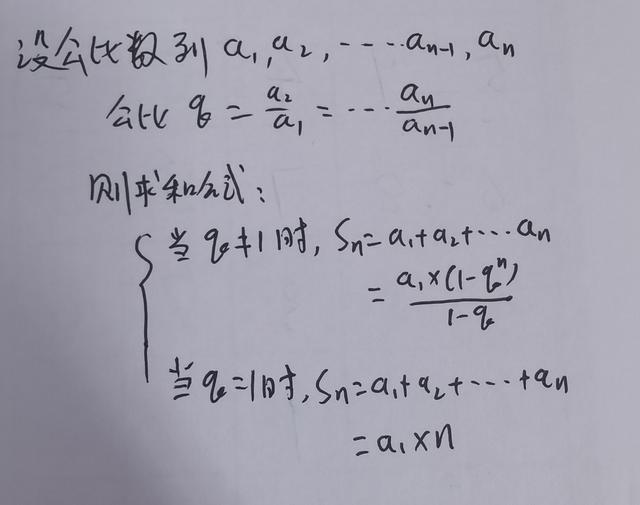 设公比数列 a₁,a₂,----an-1,an
公比 q = a₂/a₁ = --- an/an-1
则求和公式:
当 q≠1时, Sn=a₁+a₂+---an
= a₁×(1-qⁿ)/1-q
当 q=1时, Sn=a₁+a₂+----+an
=a₁×n